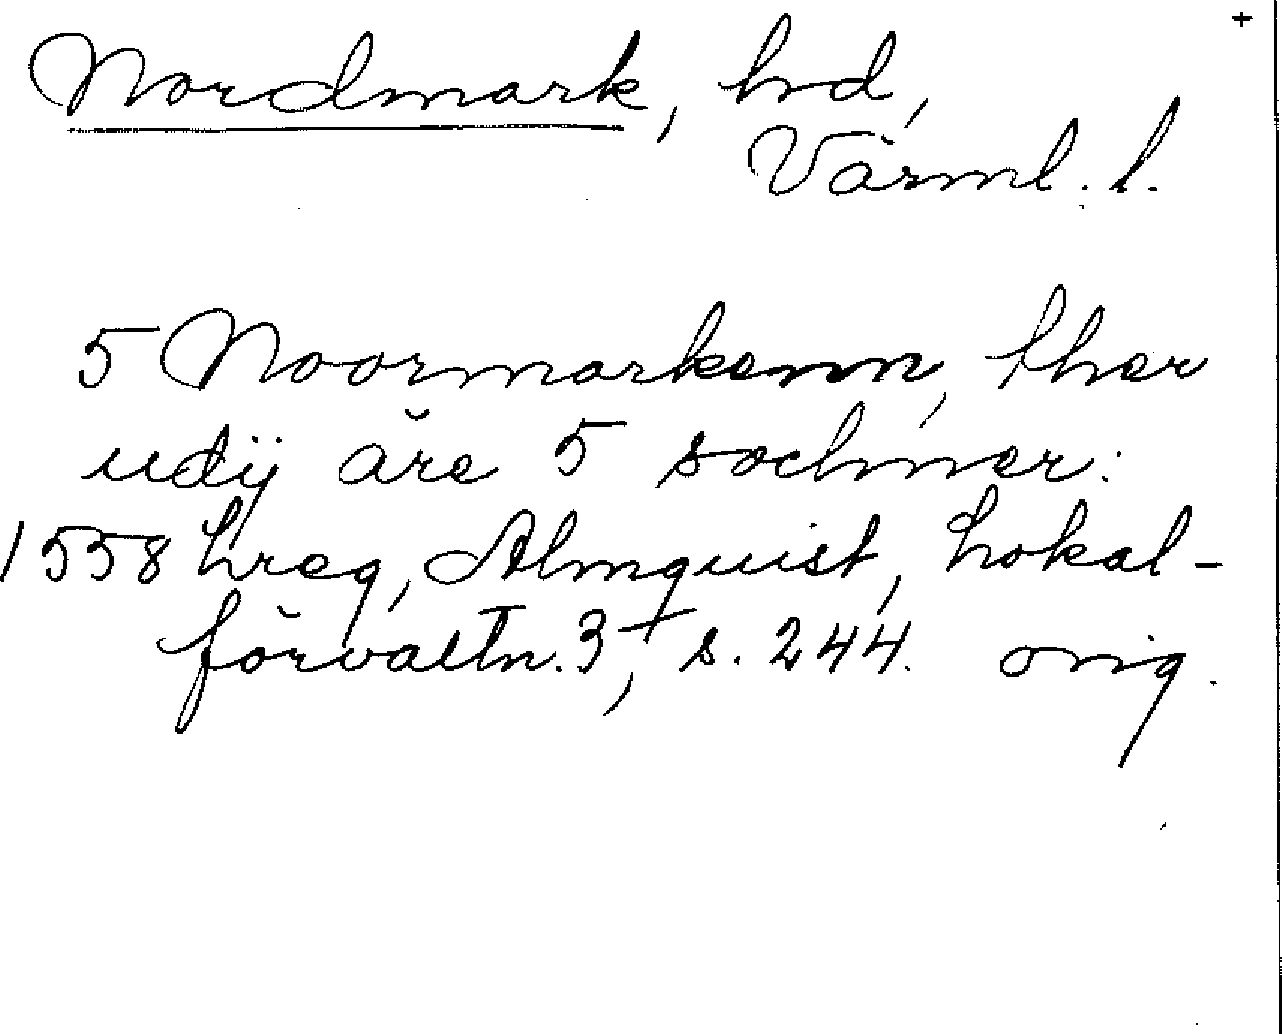 +
Nordmark, hd,
Värml. l.
5 Noormarkenn, ther
udij äre 5 sochner:
1558 hreg, Almquist, Lokal-
förvaltn. 3, s. 244. orig.